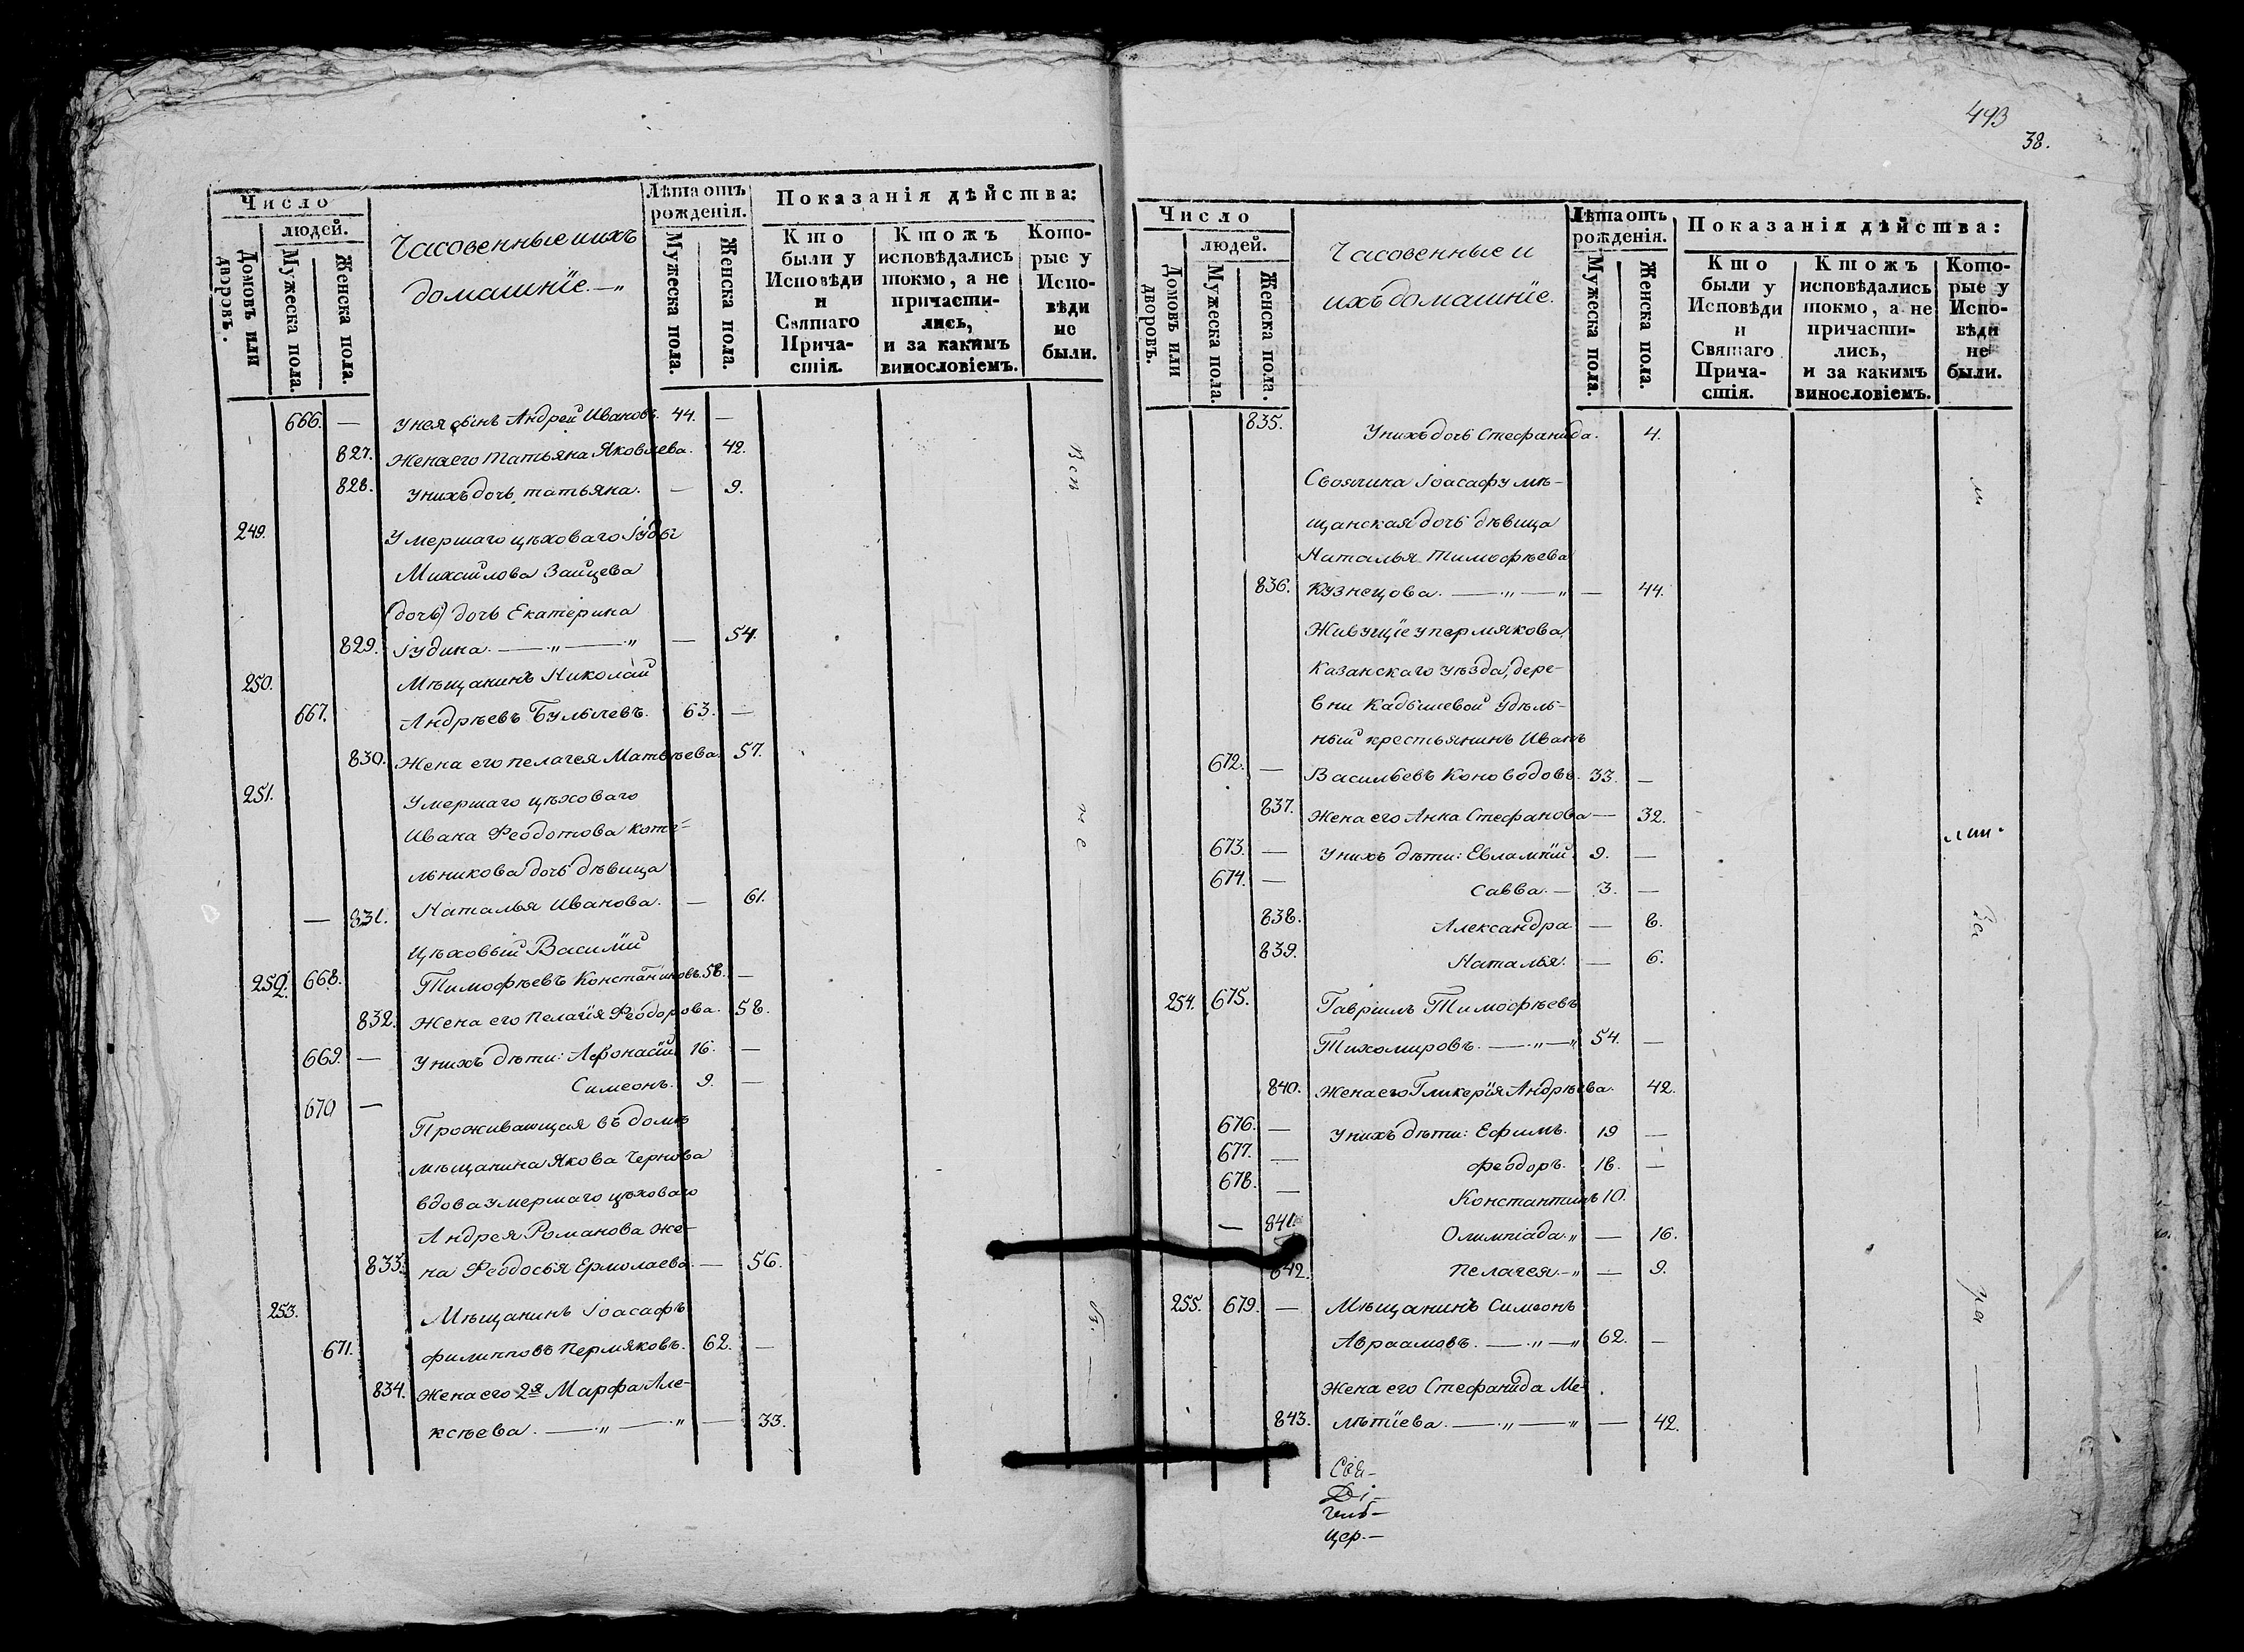 Число
людей.
Домовъ или дворовъ.
Мужеска пола.
Женска пола.
Часовенные и ихъ
домашнїе. — „
Лѣта отъ
рожденія.
Мужеска пола.
Женска пола.
Показанія дѣйства:
Кто
были у
Исповѣди
и
Святаго
Прича-
стія.
Ктожъ
исповѣдались
токмо, а не
причасти-
лись,
и за какимъ
винословіемъ.
Кото-
рые у
Испо-
вѣди
не
были.
666. — У нея сынъ Андрей Ивановъ. 44. —
827. Жена его Татьяна Яковлева. 42.
828. У нихъ дочь татьяна. — 9.
249. Умершаго цѣховаго Іуды
Михайлова Зайцева
(дочь) дочь Екатерина
829. Іудина. — „ — „ — 54.
250. Мѣщанинъ Николай
667. Андрѣевъ Булычевъ. 63. —
830. Жена его пелагея Матвѣева. 57.
251. Умершаго цѣховаго
Ивана Ѳеодотова Коте-
льникова дочь дѣвица
— 831. Наталья Иванова. — 61.
Цѣховый Василїй
252. 668. Тимофѣевъ Константиновъ. 58. —
832. Жена его Пелагїя Ѳеодорова. 58.
669. — У нихъ дѣти: Афонасїй 16. —
Симеонъ. 9. —
670 —
Проживающая въ домѣ
мѣщанина Якова Чернова
вдова умершаго цѣховаго
Андрея Романова же-
833. на Ѳеодосья Ермолаева. — 56.
253. Мѣщанинъ Іоасафъ
671. филипповъ Пермяковъ. 62. —
834. Жена его 2я Марфа Але-
ксѣева. — „ — „ — 33.
Всѣ
не
б.
493
38.
Число
людей.
Домовъ или дворовъ.
Мужеска пола.
Женска пола.
Часовенные и
ихъ домашнїе.
Лѣта отъ
рожденія.
Мужеска пола.
Женска пола.
Показанія дѣйства:
Кто
были у
Исповѣди
и
Святаго
Прича-
стія.
Ктожъ
исповѣдались
токмо, а не
причасти-
лись,
и за какимъ
винословіемъ.
Кото-
рые у
Испо-
вѣди
не
были.
835. У нихъ дочь Стефанида. 4.
Своячина Іоасафу мѣ-
щанская дочь дѣвица
Наталья Тимофѣева
836. Кузнецова. — „ — „ — 44.
Живущїе у пермякова
Казанскаго уѣзда, дере-
вни Кадышевой удѣль-
ный крестьянинъ Иванъ
672. — Васильевъ Коноводовъ. 33. —
837. Жена его Анна Стефанова — 32.
673. — У нихъ дѣти: Евлампїй 9. —
674. — Савва. — 3. —
838. Александра — 8.
839. Наталья. — 6.
254. 675. Гаврiилъ Тимофѣевъ
Тихомировъ. — „ — „ 54. —
840. Жена его Гликерїя Андрѣева. 42.
676. — У нихъ дѣти: Ефимъ. 19 —
677. — Ѳеодоръ. 18. —
678. — Константинъ 10.
— 841. Олимпіада. „ — 16.
842. Пелагея. — „ — 9.
255. 679. — Мѣщанинъ Симеонъ
Авраамовъ. — „ — „ 62. —
Жена его Стефанида Ме-
843. лѣтїева. — „ — „ — 42.